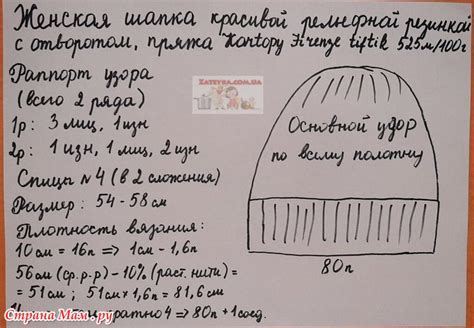 Женская шапка красивой рельефной резинкой
с отворотом, пряжа Kartopu Firenze tiftik 525м/100г
ZATEYKA.COM.UA
Раппорт узора
(всего 2 ряда)
1р: 3 лиц, 1 изн
2р: 1 изн, 1 лиц, 2 изн
Спицы №4 (в 2 сложения)
Размер: 54-58 см
Плотность вязания:
10см = 16п => 1см - 1,6п
56см (ср. р-р) - 10% (раст. нити) =
= 51см; 51см х 1,6п = 81,6см
кратно 4 => 80п + 1 соед.
Основной узор
по всему полотну
80п
Страна Мам.ру